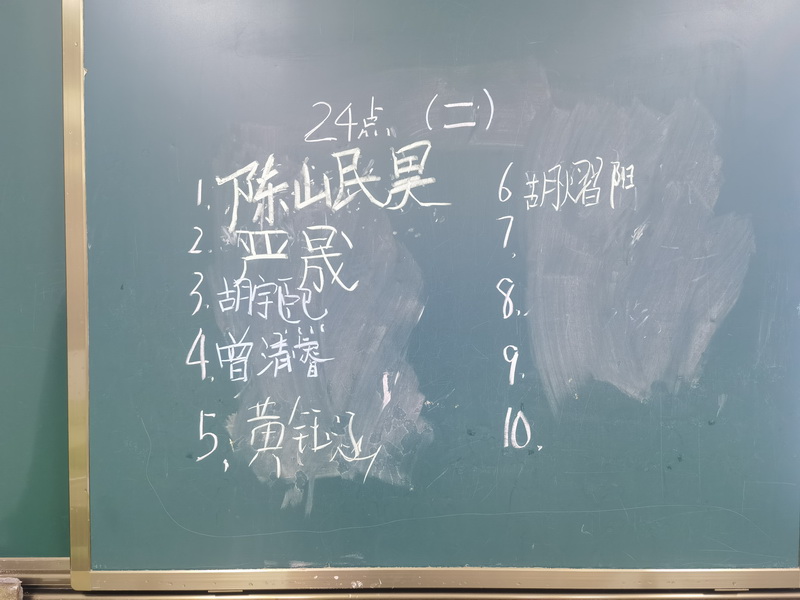 24点 (二)
1. 陈山民昊
2. 严晟
3. 胡宇熙
4. 曾清睿
5. 黄钰涵
6 胡熠阳
7.
8.
9.
10.